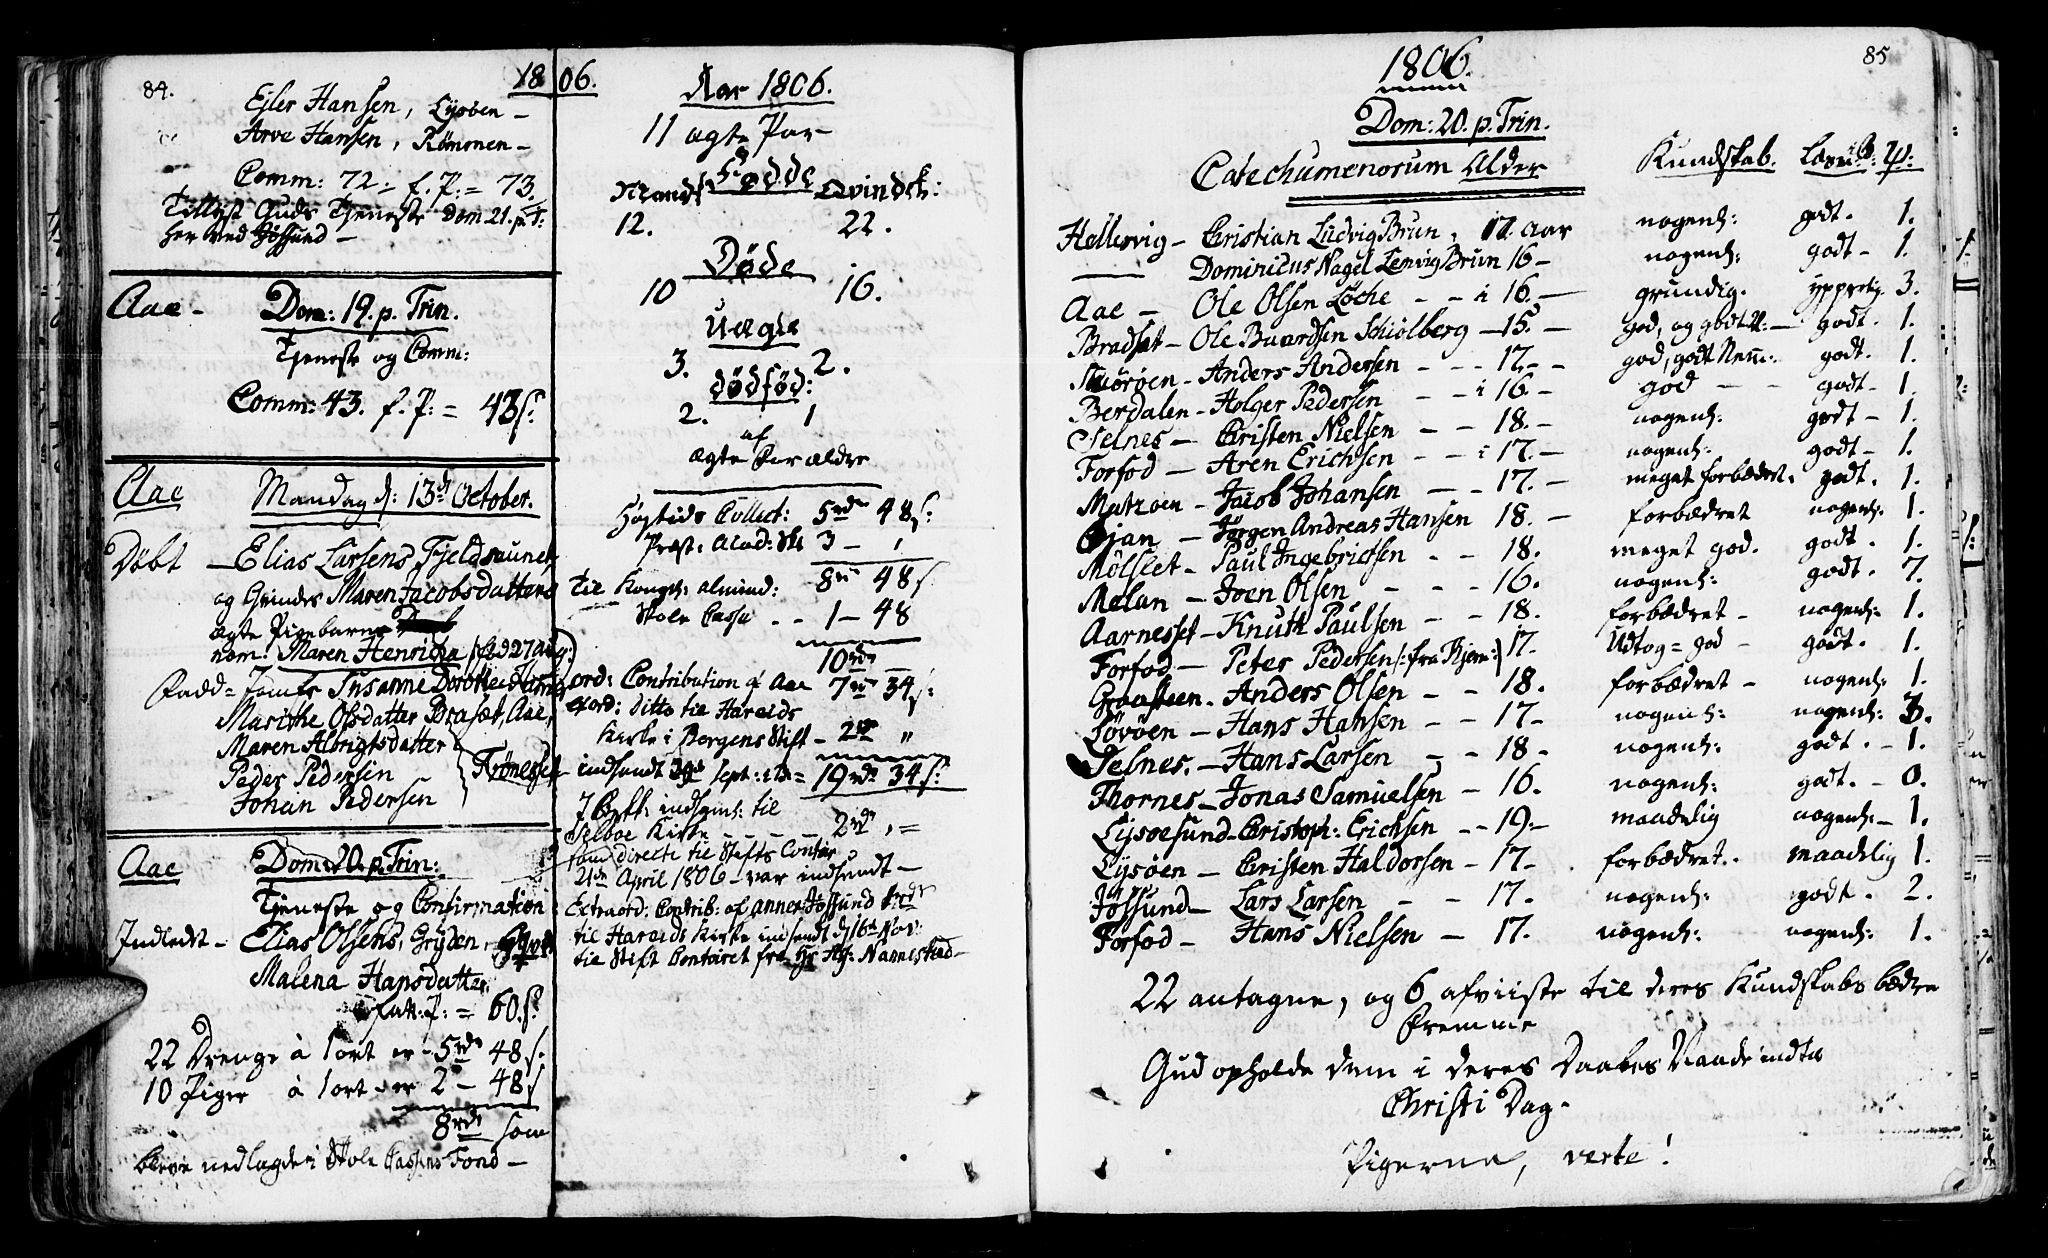 84.
1806.
Ejler Hansen, Lysøen -
Arve Hansen, Rømmen -
Comm: 72 - f. P: = 73
Tillyst Guds Tjeneste Dom 21. p. T:
her ved Jøssund -
Aae - Dom: 19. p. Trin.
Tjeneste og Comm:
Comm: 43. f. P: = 43 s:
Aae Mandag d: 13de October.
Døbt - Elias Larsens Fjeldraunet
og Qvindes Maren Jacobsdatters
ægte Pigebarn
nom: Maren Henricha / fød 27 aug:
Fadd = Jomfr Susanne Dorothe
Marithe Olsdatter Brasæt, Aae,
Maren Albrigtsdatter
Peder Pedersen
Johan Pedersen
Trønesset
Aae Dom: 20. p. Trin:
Tjeneste og Confirmation
Indledt - Elias Olsens, Gryden,
Malena Hansdatter
fatt: P: = 60. s:
22 Drenge à 1 ort er - 5 rdr 48 s.
10 Piger à 1 ort - er 2 - 48 s
8 rdr som
bleve nedlagde i Skole Cassens Fond -
Aar 1806.
11 ægte Par -
Fødde
Mandk: Qvindek:
12. 22.
Døde
10 16.
Uægte
3. 2.
dødfød:
2. 1
af
ægte Forældre
Høytids Collect: 5 rdr 48 s:
Præst: 3 -
8 rdr 48 s.
Til Kongel: almind:
Skole Cassa - - 1 - 48
10 rdr
ord: Contribution af Aae 7 rdr 34 s:
exord: ditto til Hareids
Kirke i Bergens Stift - 2 rdr "
indsendt sept: = 19 rdr 34 s:
indsamlet til
Selboe Kirke - - - - - 2 rdr
som directe til Stifts Contor
21de April 1806 - var indsendt -
Extraord: Contrib: af annex Jøssund
til Hareids Kirke indsendt d. 16de Nov:
til Stift Contoret fra Hr Nannestad -
85
1806.
Dom: 20. p. Trin.
Catechumenorum Alder Kundskab.
Hellesvig - Christian Ludvig Brun, 17 aar nogenl: godt. 1.
Dominicus Nagel Lemvig Brun 16 - nogenl: godt - 1.
Aae - Ole Olsen Løche - - i 16. - grundig. ypperlig. 3.
Bradsæt - Ole Buurdsen Schiölberg - 15. - god, og godt N: - godt. 1.
Storøen - Anders Andersen - - - 17. - - god, godt Nem: godt. 1.
Berdalen - Holger Pedersen - - i 16. - god - - godt - 1.
Selnes - Cristen Nielsen - - 18. - nogenl: godt - 1.
Forfod - Aren Erichsen - - i 17. - nogenl: godt - 1.
Mutzoen - Jacob Johansen - - 17. - meget forbedret. godt. 1.
Opjan - Jørgen Andreas Hansen 18. - forbedret nogenl: 1.
Mølslet - Paul Ingebrigtsen - - 18. meget god. godt. 1.
Melan - Joen Olsen - - - 16. nogenl: godt. 7.
Aarnesset - Knuth Paulsen - - 18. forbedret - nogenl: 1.
Forfod - Peter Pedersen /: fra Bjørn:/ 17. Udtog = god - godt. 1.
Graasteen - Anders Olsen - - 18. forbedret - nogenl: 1.
Lørøen - Hans Hansen - - 17 - nogenl: nogenl: 3.
Selnes. - Hans Larsen - - 18 - nogenl: godt. - 1.
Thornes - Jonas Samuelsen - 16. nogenl: godt. - 0.
Lysøesund - Christoph: Erichsen - - 19 - maadelig nogenl: - 1.
Lysøen - Cristen Haldorsen - 17 - forbedret. - maadelig 1.
Jøssund - Lars Larsen - - 17. nogenl: godt. 2.
Forfod - Hans Nielsen - 17. nogenl: nogenl: 1.
22 antagne, og 6 afviiste til deres Kundskabs bedre
Fremme
Gud opholde dem i deres Daabes Naade indtil
Christi Dag -
Pigerne, verte!